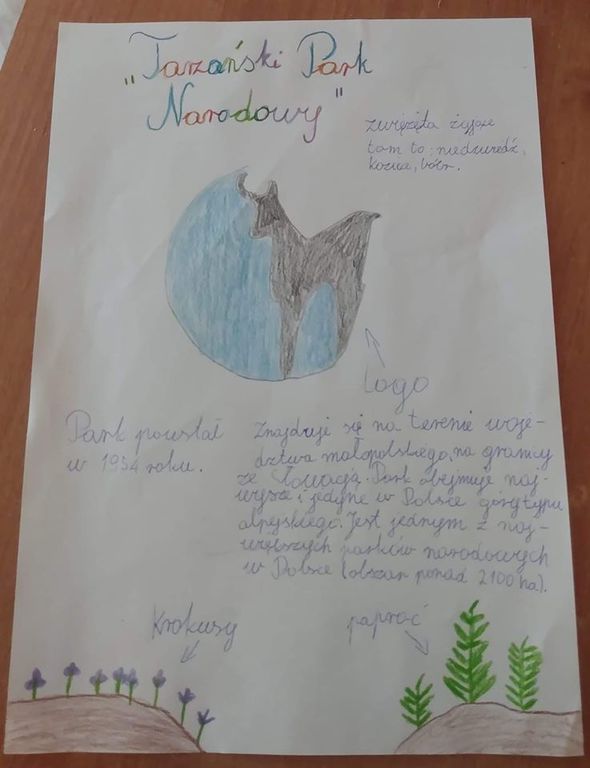 „Tarzański Park
Narodowy"
zwięzęta żyjące
tam to: niedźwiedź,
kozica, bóbr.
Logo
Park powstał
w 1954 roku.
Znajduje się na terenie woje-
dztwa małopolskiego, na granicy
ze Słowacją. Park obejmuje naj-
wyższe i jedyne w Polsce góry typu
alpejskiego. Jest jednym z naj-
większych parków narodowych
w Polsce (obszar ponad 2100 ha).
Krokusy
paproć